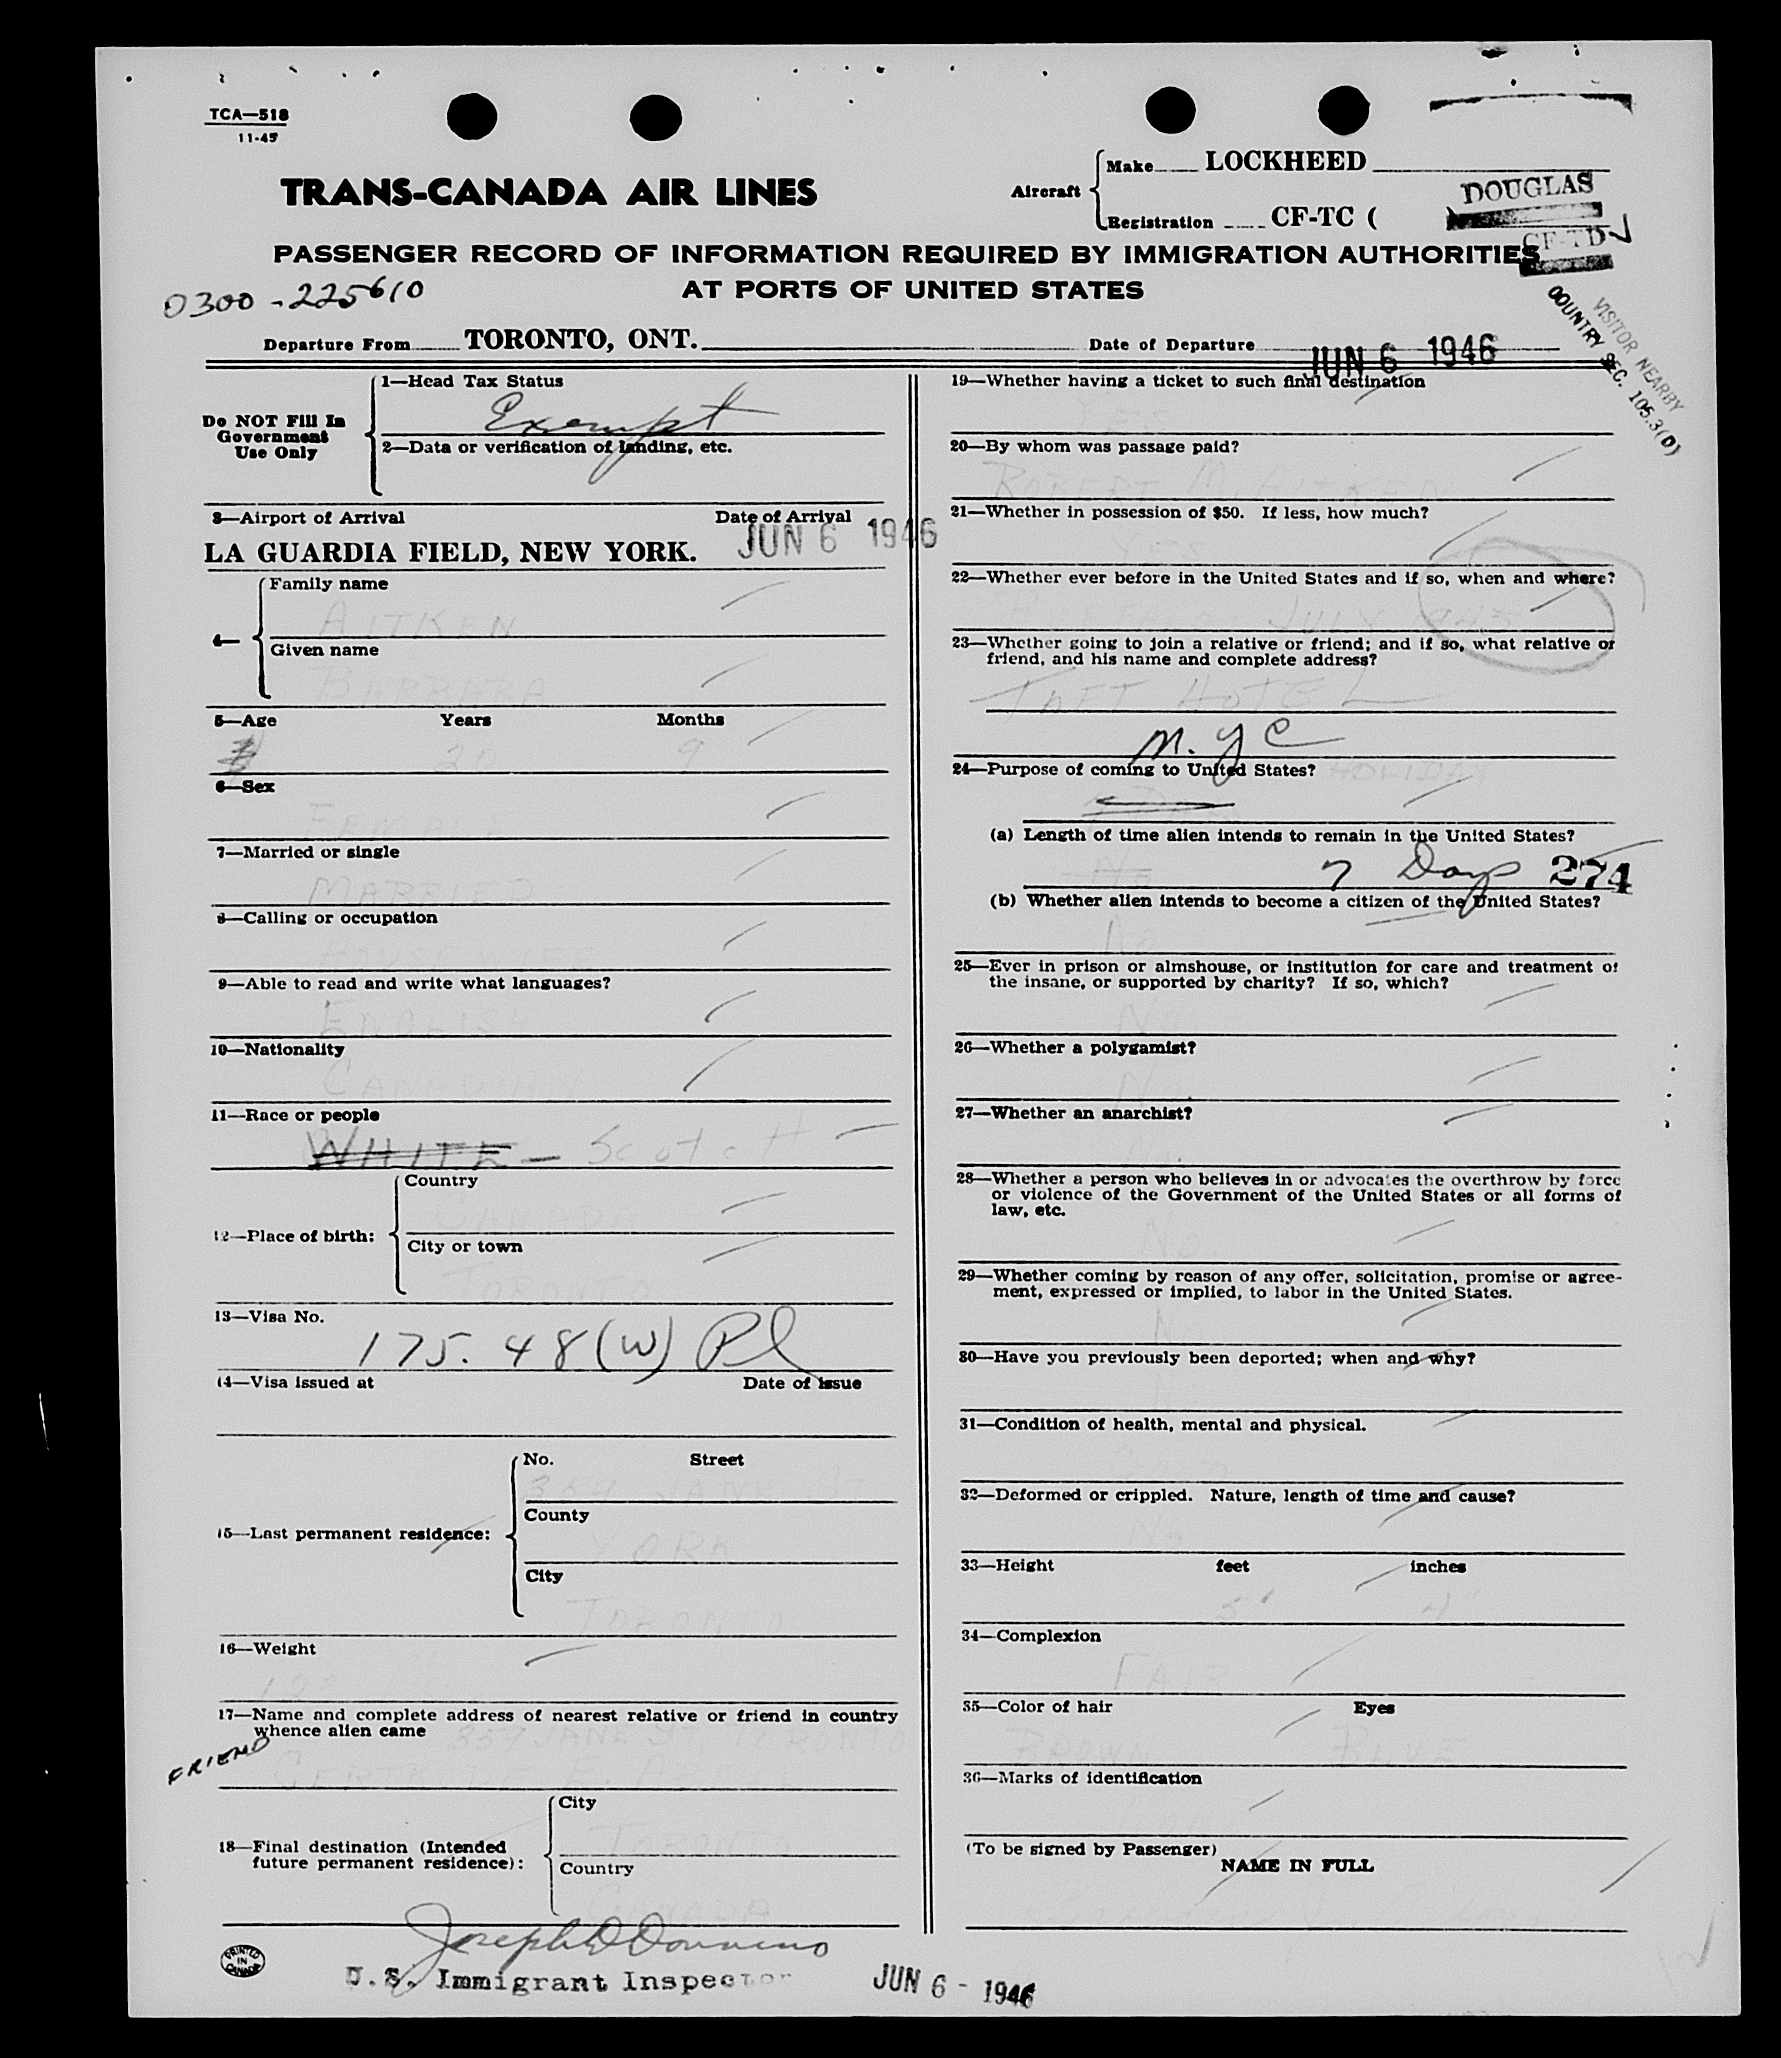 TCA—518
11-45
TRANS-CANADA AIR LINES
Aircraft
Make LOCKHEED
DOUGLAS
Registration CF-TC (
CF-TD
PASSENGER RECORD OF INFORMATION REQUIRED BY IMMIGRATION AUTHORITIES
AT PORTS OF UNITED STATES
0300-225610
VISITOR NEARBY
COUNTRY SEC. 105.3(D)
Departure From TORONTO, ONT. Date of Departure JUN 6 1946
Do NOT Fill In
Government
Use Only
1—Head Tax Status
Exempt
2—Data or verification of landing, etc.
3—Airport of Arrival Date of Arrival
LA GUARDIA FIELD, NEW YORK. JUN 6 1946
4—
Family name
AITKEN
Given name
BARBARA
5—Age Years Months
20 9
6—Sex
FEMALE
7—Married or single
MARRIED
8—Calling or occupation
9—Able to read and write what languages?
ENGLISH
10—Nationality
CANADIAN
11—Race or people
WHITE — Scotch
12—Place of birth:
Country
CANADA
City or town
TORONTO
13—Visa No.
175.48(W) Pl
14—Visa issued at Date of issue
15—Last permanent residence:
No. Street
JANE ST
County
YORK
City
TORONTO
16—Weight
17—Name and complete address of nearest relative or friend in country
whence alien came 357 JANE ST TORONTO
FRIEND
18—Final destination (Intended
future permanent residence):
City
TORONTO
Country
CANADA
19—Whether having a ticket to such final destination
YES
20—By whom was passage paid?
ROBERT M. AITKEN
21—Whether in possession of $50. If less, how much?
Yes
22—Whether ever before in the United States and if so, when and where?
JULY 1945
23—Whether going to join a relative or friend; and if so, what relative or
friend, and his name and complete address?
TAFT HOTEL
N.Y C
24—Purpose of coming to United States? HOLIDAY
(a) Length of time alien intends to remain in the United States?
No 7 Days 274
(b) Whether alien intends to become a citizen of the United States?
No
25—Ever in prison or almshouse, or institution for care and treatment of
the insane, or supported by charity? If so, which?
No
26—Whether a polygamist?
No
27—Whether an anarchist?
No.
28—Whether a person who believes in or advocates the overthrow by force
or violence of the Government of the United States or all forms of
law, etc.
No.
29—Whether coming by reason of any offer, solicitation, promise or agree-
ment, expressed or implied, to labor in the United States.
30—Have you previously been deported; when and why?
31—Condition of health, mental and physical.
32—Deformed or crippled. Nature, length of time and cause?
No
33—Height feet inches
5' 4"
34—Complexion
FAIR
35—Color of hair Eyes
BROWN BLUE
36—Marks of identification
(To be signed by Passenger)
NAME IN FULL
PRINTED
IN
CANADA
Joseph D Donnino
U.S. Immigrant Inspector JUN 6 - 1946